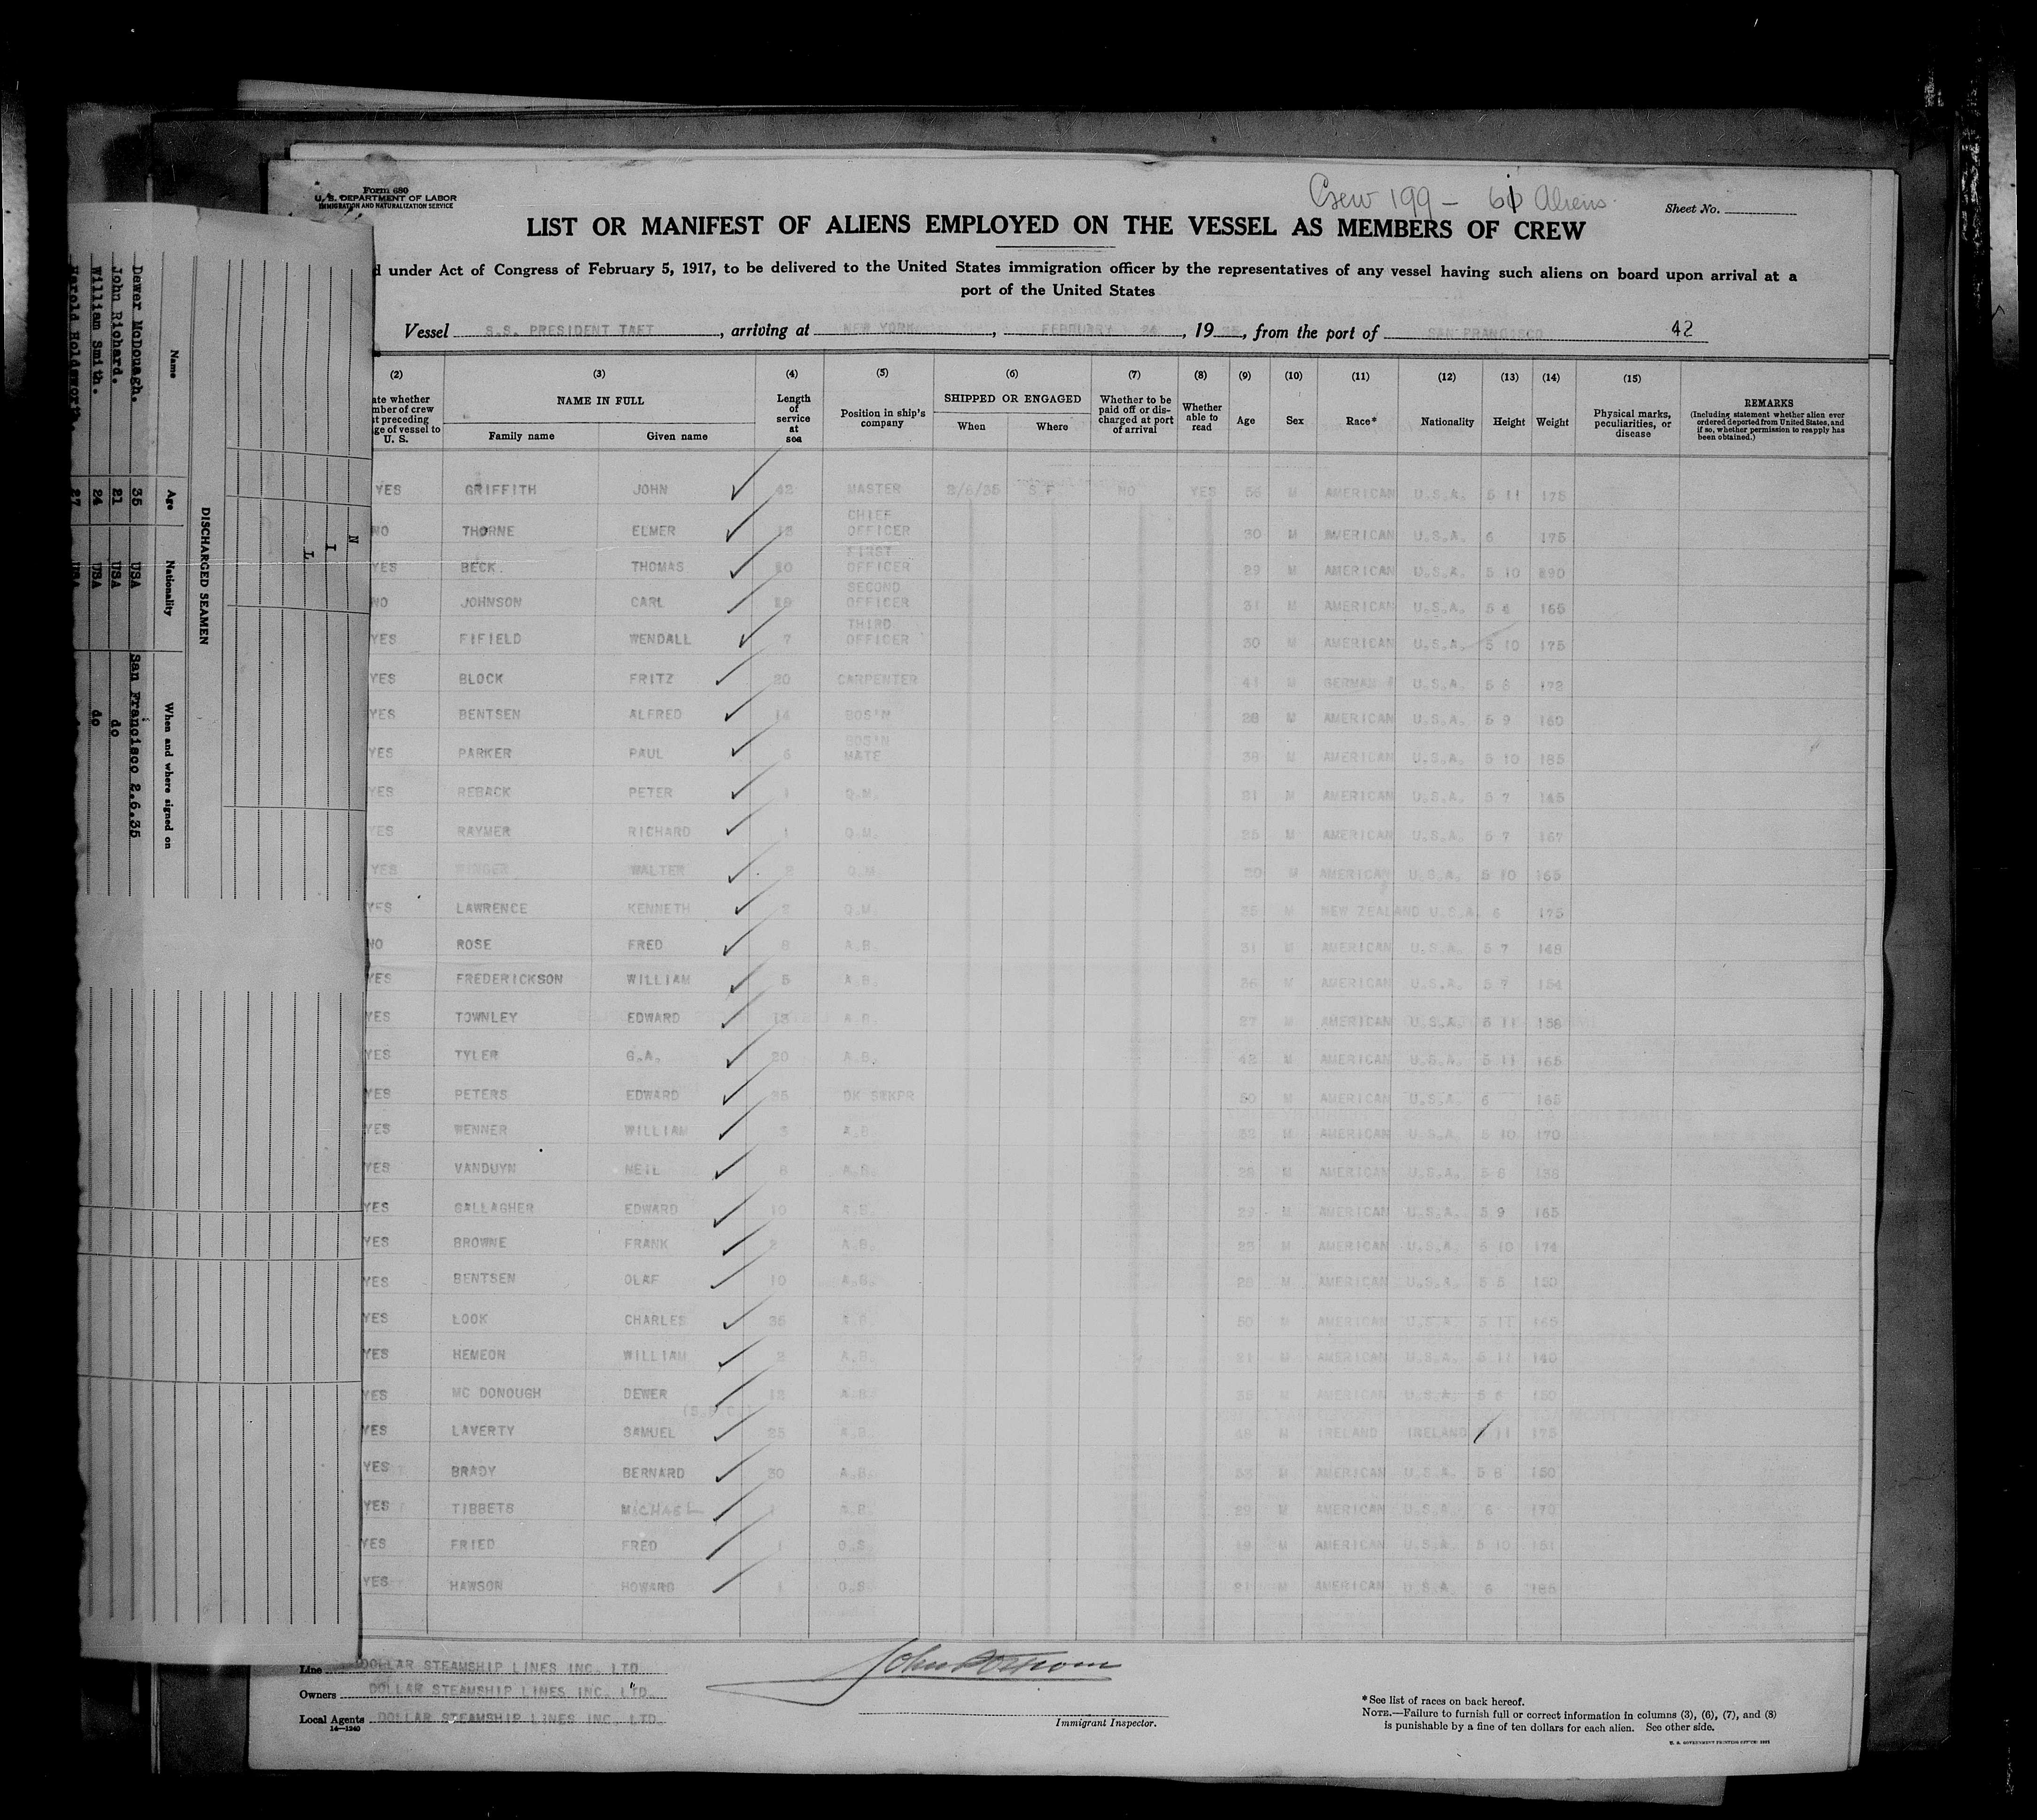 Form 680
U. S. DEPARTMENT OF LABOR
IMMIGRATION AND NATURALIZATION SERVICE
Crew 199 - 61 Aliens
Sheet No.
LIST OR MANIFEST OF ALIENS EMPLOYED ON THE VESSEL AS MEMBERS OF CREW
d under Act of Congress of February 5, 1917, to be delivered to the United States immigration officer by the representatives of any vessel having such aliens on board upon arrival at a
port of the United States
Vessel S.S. PRESIDENT TAFT, arriving at NEW YORK, FEBRUARY 24, 1935, from the port of SAN FRANCISCO 42
(2) (3) (4) (5) (6) (7) (8) (9) (10) (11) (12) (13) (14) (15)
ate whether mber of crew t preceding ge of vessel to U. S.
NAME IN FULL
Family name Given name
Length of service at sea
Position in ship's company
SHIPPED OR ENGAGED
When Where
Whether to be paid off or discharged at port of arrival
Whether able to read
Age Sex Race* Nationality Height Weight
Physical marks, peculiarities, or disease
REMARKS
(Including statement whether alien ever ordered deported from United States, and if so, whether permission to reapply has been obtained.)
YES GRIFFITH JOHN 42 MASTER 2/6/35 S.F. NO YES 56 M AMERICAN U.S.A. 5 11 175
NO THORNE ELMER CHIEF OFFICER 30 M AMERICAN U.S.A. 6 175
YES BECK THOMAS FIRST OFFICER 29 M AMERICAN U.S.A. 5 10
NO JOHNSON CARL SECOND OFFICER 31 M AMERICAN U.S.A.
YES FIFIELD WENDALL 7 THIRD OFFICER 30 M AMERICAN U.S.A. 5 10 175
YES BLOCK FRITZ 20 CARPENTER 41 M GERMAN U.S.A. 5 8 172
YES BENTSEN ALFRED 14 BOS'N 28 M AMERICAN U.S.A. 5 9 160
YES PARKER PAUL 6 BOS'N MATE 38 M AMERICAN U.S.A. 5 10 185
YES REBACK PETER 1 Q.M. 21 M AMERICAN U.S.A. 5 7 145
YES RAYMER RICHARD 1 Q.M. 25 M AMERICAN U.S.A. 5 7 167
YES WINGER WALTER 2 Q.M. M AMERICAN U.S.A. 5 10 165
YES LAWRENCE KENNETH 2 Q.M. 35 M NEW ZEALAND U.S.A. 6 175
NO ROSE FRED 8 A.B. 31 M AMERICAN U.S.A. 5 7 148
YES FREDERICKSON WILLIAM 5 A.B. 36 M AMERICAN U.S.A. 5 7 154
YES TOWNLEY EDWARD 13 A.B. 27 M AMERICAN U.S.A. 5 11 158
YES TYLER G.A. 20 A.B. 42 M AMERICAN U.S.A. 5 11 165
YES PETERS EDWARD 35 DK SWKPR 50 M AMERICAN U.S.A. 6 165
YES WENNER WILLIAM 3 A.B. 32 M AMERICAN U.S.A. 5 10 170
YES VANDUYN NEIL 8 A.B. 28 M AMERICAN U.S.A. 5 8 138
YES GALLAGHER EDWARD 10 A.B. 27 M AMERICAN U.S.A. 5 9 165
YES BROWNE FRANK 2 A.B. 23 M AMERICAN U.S.A. 5 10 174
YES BENTSEN OLAF 10 A.B. M AMERICAN U.S.A. 150
YES LOOK CHARLES 35 A.B. 50 M AMERICAN U.S.A. 5 11 165
YES HEMEON WILLIAM 2 A.B. 21 M AMERICAN U.S.A. 5 11 140
YES MC DONOUGH DEWER 12 A.B. 35 M AMERICAN U.S.A. 150
YES LAVERTY SAMUEL 25 A.B. 48 M IRELAND IRELAND 11 175
YES BRADY BERNARD 30 A.B. 53 M AMERICAN U.S.A. 5 8 150
YES TIBBETS MICHAEL 1 29 M AMERICAN U.S.A. 6 170
YES FRIED FRED 1 O.S. 19 M AMERICAN U.S.A. 5 10 151
YES HAWSON HOWARD 1 O.S. 21 M AMERICAN U.S.A. 6 185
Line DOLLAR STEAMSHIP LINES INC. LTD
Owners DOLLAR STEAMSHIP LINES INC. LTD.
Local Agents DOLLAR STEAMSHIP LINES INC. LTD
14—1240
Immigrant Inspector.
*See list of races on back hereof.
NOTE.—Failure to furnish full or correct information in columns (3), (6), (7), and (8)
is punishable by a fine of ten dollars for each alien. See other side.
N I L
DISCHARGED SEAMEN
Name Age Nationality When and where signed on
Dewer McDonagh. 35 USA San Francisco 2.6.35
John Richard. 21 USA do
William Smith. 24 USA do
Harold Holdsworth. 27 USA